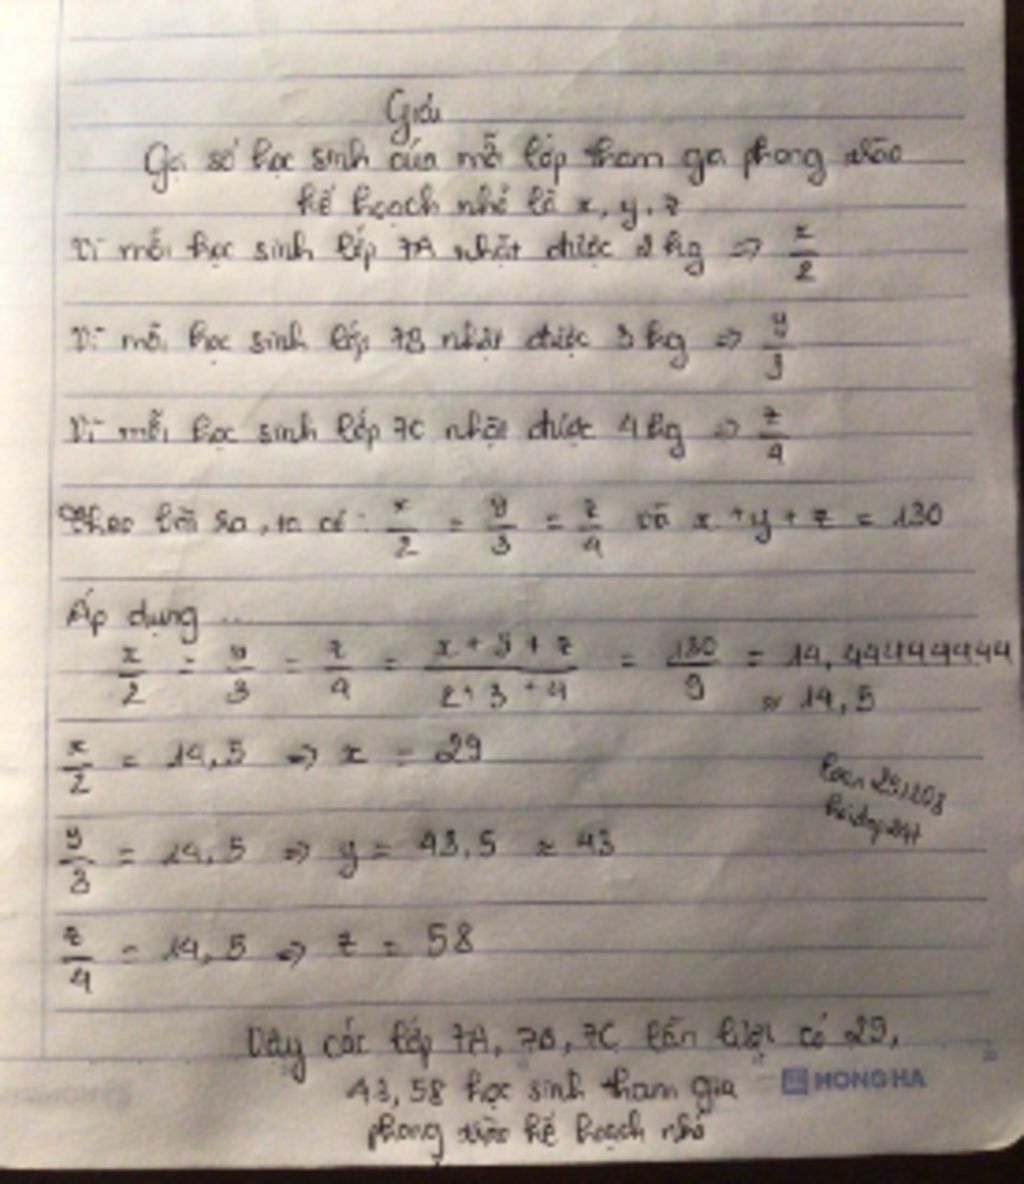 Giải
Gọi số học sinh của mỗi lớp tham gia phong trào
kế hoạch nhỏ là x, y, z
Vì mỗi học sinh lớp 7A nhặt được 2 kg => x/2
Vì mỗi học sinh lớp 7B nhặt được 3 kg => y/3
Vì mỗi học sinh lớp 7C nhặt được 4 kg => z/4
Theo bài ra, ta có: x/2 = y/3 = z/4 và x + y + z = 130
Áp dụng ...
x/2 = y/3 = z/4 = (x + y + z)/(2 + 3 + 4) = 130/9 = 14,44444444
≈ 14,5
x/2 = 14,5 => x = 29
y/3 = 14,5 => y = 43,5 ≈ 43
z/4 = 14,5 => z = 58
Vậy các lớp 7A, 7B, 7C lần lượt có 29,
43, 58 học sinh tham gia
phong trào kế hoạch nhỏ
HONG HA